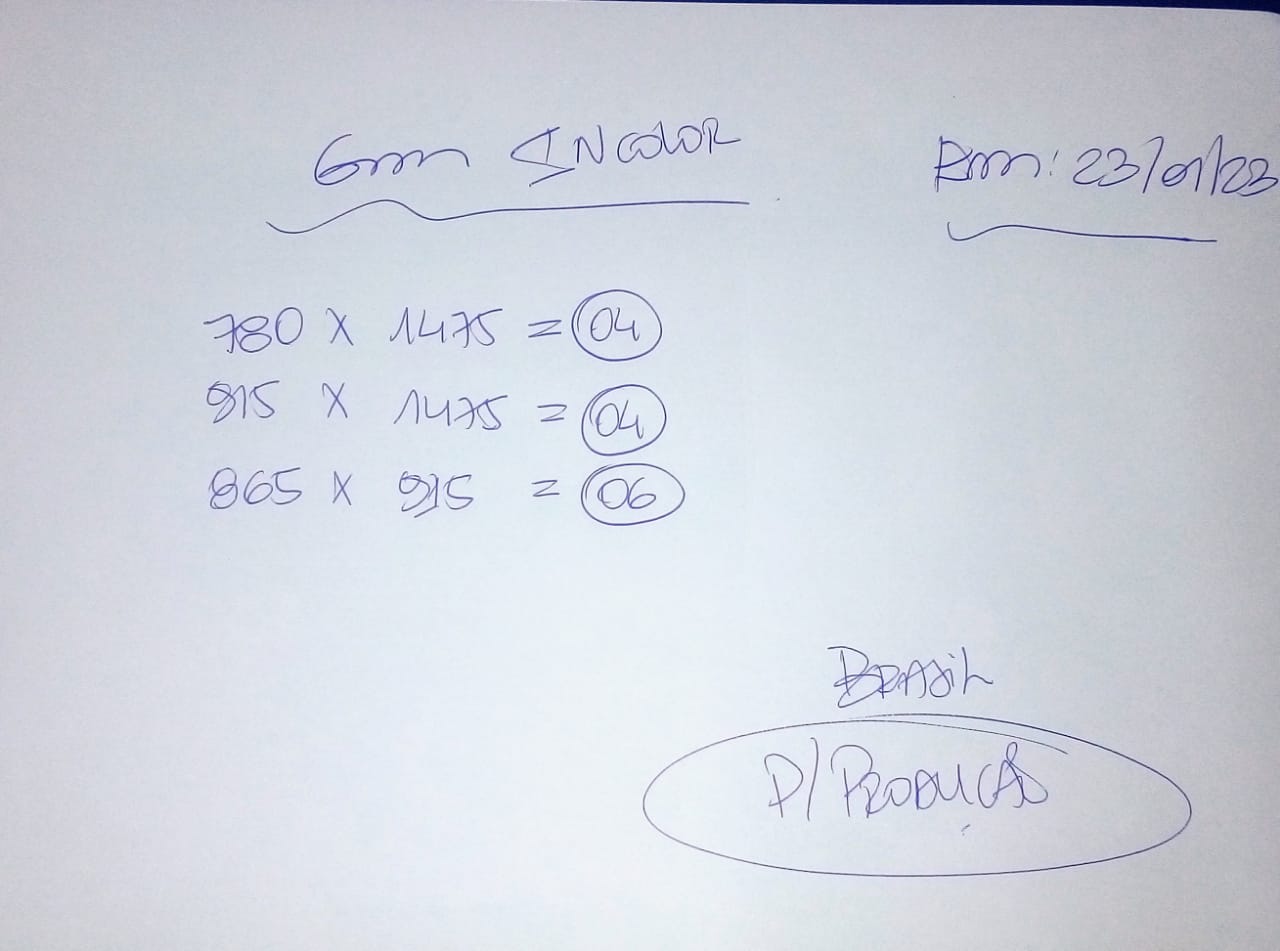 6mm INcoloR
Rm: 23/01/23
780 X 1475 = 04
915 X 1475 = 04
865 X 915 = 06
BRASiL
P/ PRODUÇÃO